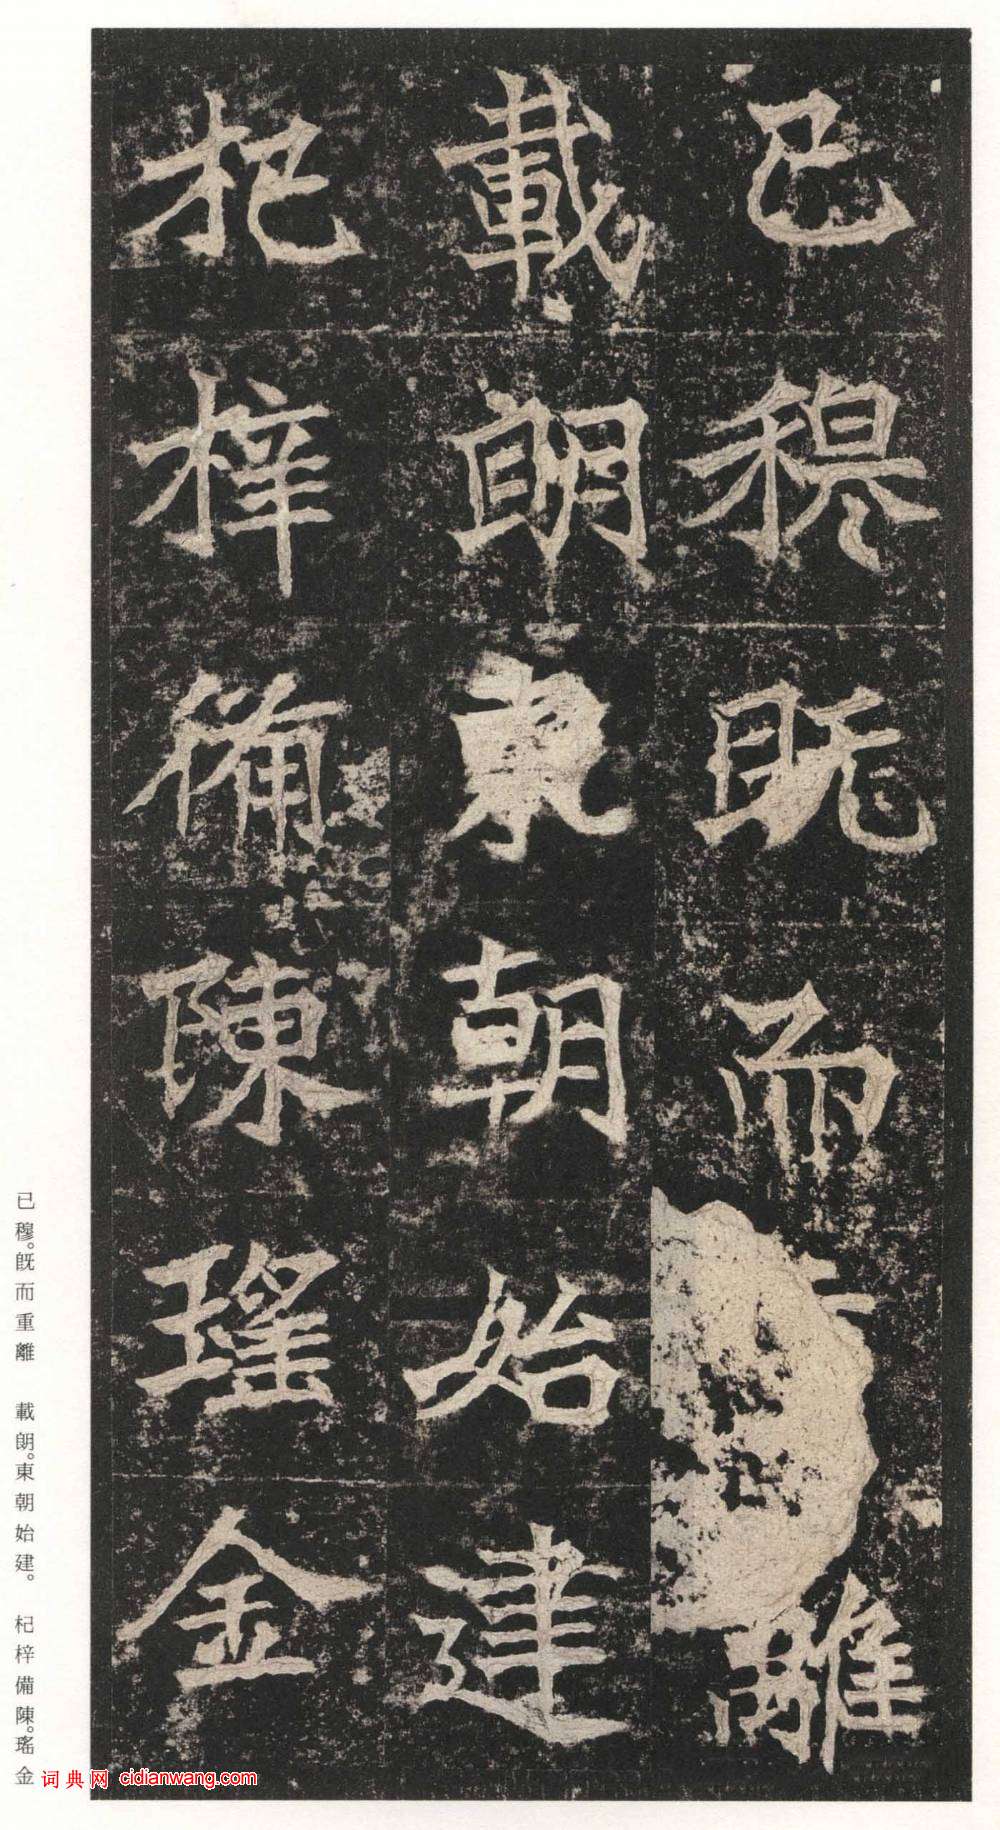 已穆既而離
載朗東朝始建
杞梓備陳瑤金
已穆。既而重離　載朗。東朝始建。　杞梓備陳。瑤金
词典网 cidianwang.com